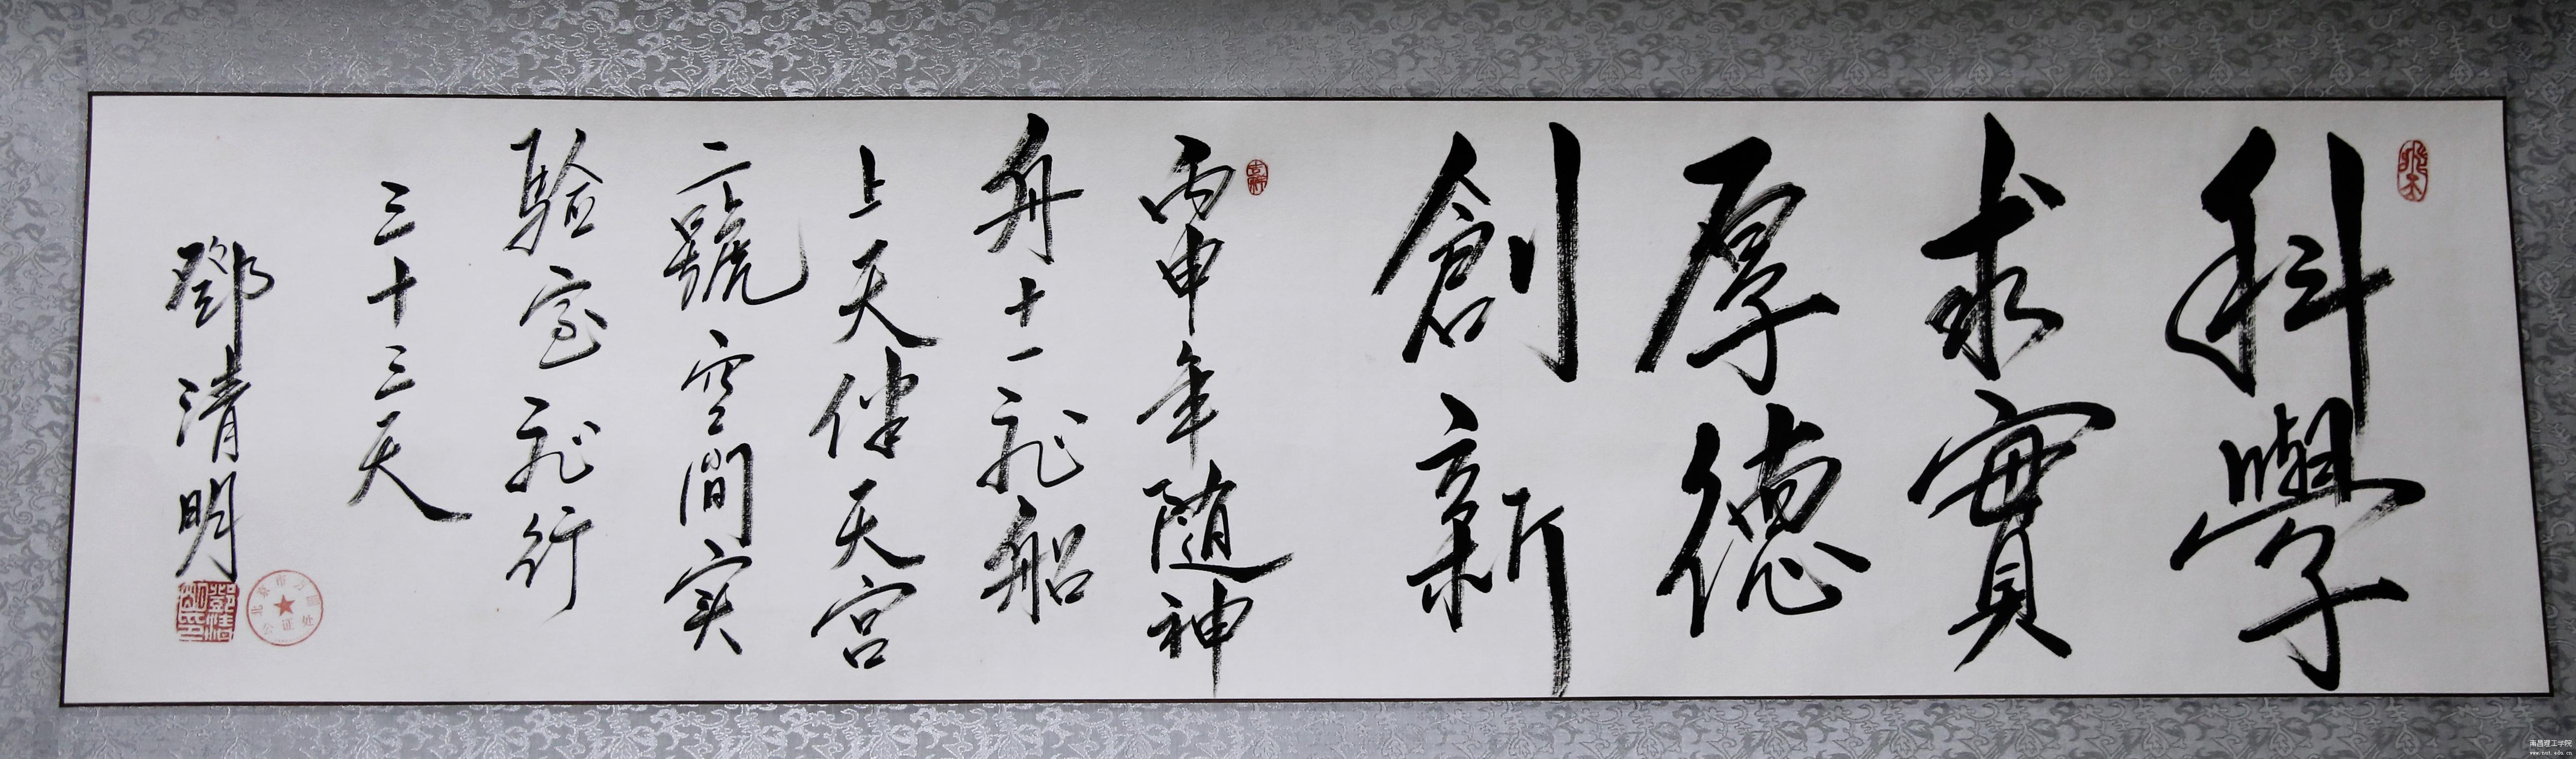 科學
求實
厚德
創新
丙申年随神
舟十一飞船
上天伴天宫
二號空間实
验室飞行
三十三天
鄧清明
鄧清明印
北京市方圆公证处
南昌理工学院
www.nut.edu.cn